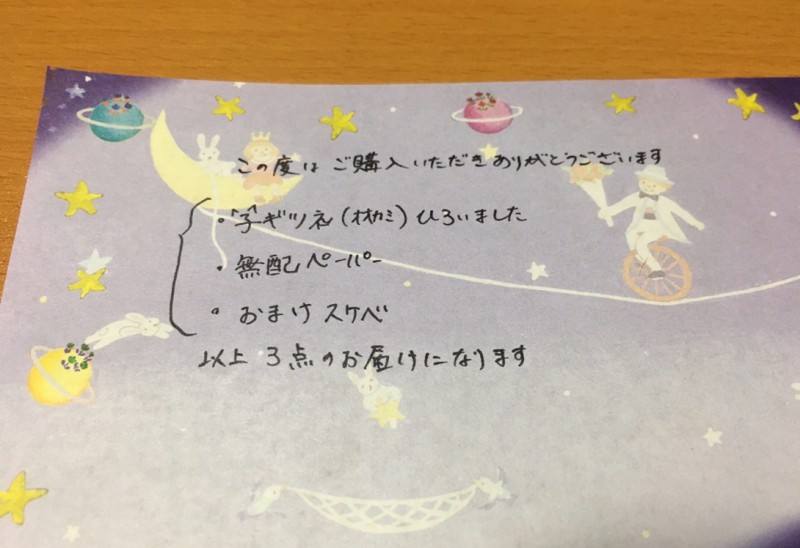 この度は ご購入いただきありがとうございます
・子ギツネ(オオカミ)ひろいました
・無配ペーパー
・おまけスケベ
以上 3点のお届けになります